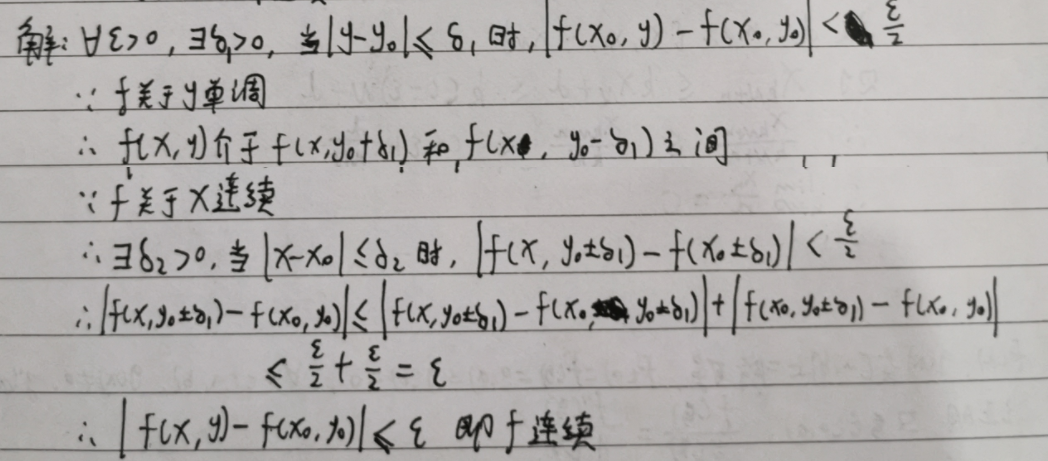 解: ∀ε>0, ∃δ₁>0, 当|y-y₀|≤δ₁时, |f(x₀, y) - f(x₀, y₀)| < ε/2
∵ f关于y单调
∴ f(x, y)介于f(x, y₀+δ₁)和f(x, y₀-δ₁)之间
∵ f关于x连续
∴ ∃δ₂>0, 当|x-x₀|≤δ₂时, |f(x, y₀±δ₁) - f(x₀±δ₁)| < ε/2
∴ |f(x, y₀±δ₁) - f(x₀, y₀)| ≤ |f(x, y₀±δ₁) - f(x₀, y₀±δ₁)| + |f(x₀, y₀±δ₁) - f(x₀, y₀)|
≤ ε/2 + ε/2 = ε
∴ |f(x, y) - f(x₀, y₀)| ≤ ε 即f连续